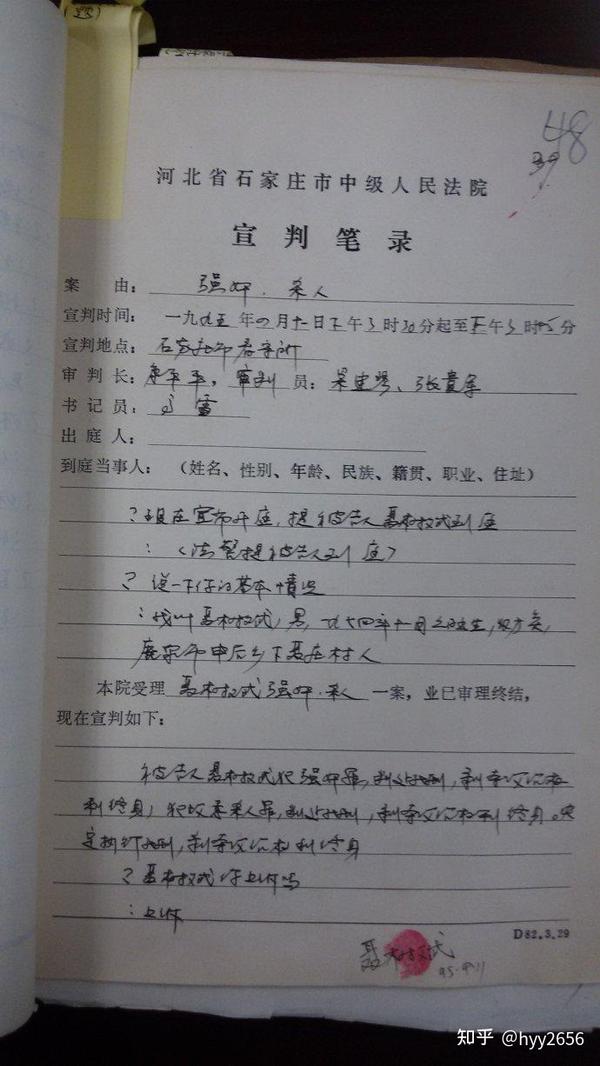 48
39
河北省石家庄市中级人民法院
宣判笔录
案由：强奸.杀人
宣判时间：一九九五年四月十一日下午3时30分起至下午3时45分
宣判地点：石家庄市看守所
审判长：康平平，审判员：张
书记员：
出庭人：
到庭当事人：（姓名、性别、年龄、民族、籍贯、职业、住址）
？现在宣布开庭，提被告人聂树斌到庭
：（法警提被告人到庭）
？说一下你的基本情况
：我叫聂树斌，男，
鹿泉市申后乡下聂庄村人
本院受理聂树斌强奸.杀人一案，业已审理终结，
现在宣判如下：
被告人聂树斌犯强奸罪，判处死刑，剥夺政治权
利终身；犯故意杀人罪，判处死刑，剥夺政治权利终身。决
定执行死刑，剥夺政治权利终身
？聂树斌你上诉吗
：上诉
D82.3.29
聂树斌
95.4.11
知乎 @hyy2656